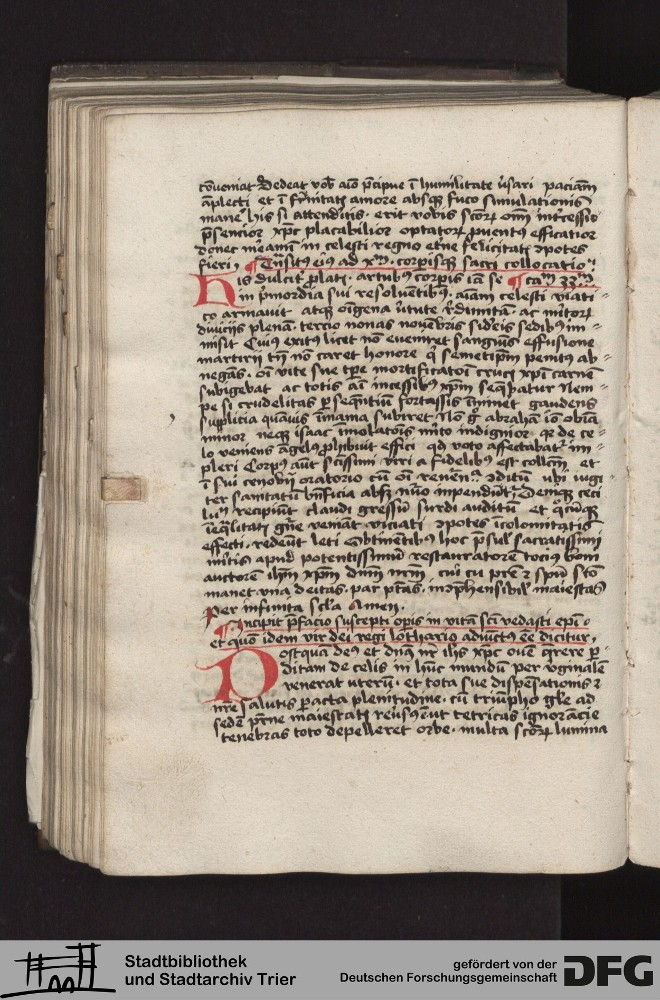 conveniat Dedeat vob aio pcipue i humilitate vsari paciam
aplecti et i frnitatis amore absq fuco simulationis
mane his si attenditis erit vobis scoru oim intcessio
psencior xpc placabilior optatoru puentus efficatior
donec meam in celesti regno etne felicitatis opotes
fieri Tnsitus eius ad xm corpisq sacri collocatio
His dulcit plati artubus corpis ia se ca 33
in pmordia sui resoluentibus aiam celesti viati
co armauit atq oigena vtute rdimita ac mitoru
diuiciis plenam tercio nonas nouebris sideis sedibus im
misit Cuius exitus licet no euenit sanguis effusione
martirii tn no caret honore q semetipm penitus ab
negas oi vite sue tpe mortificatoi cruci xpi carne
subigebat ac totis ai incessibus xpm seqbatur Nem
pe si crudelitas psequtiu fortassis imineret gaudens
supplicia quauis imania subiret No g abraha io obia
minor neq isaac imolatois mito indignior q de ce
lo veniens agelus phibuit effici qd voto affectabat im
pleri Corpus aut scissimi viri a fidelibus est collcm et
i sui cenobii oratorio cu oi reuen oditu vbi iugi
ter sanitatu bnficia absq nuo impendut Deniq ceci
lum recipiunt claudi gressu surdi auditu et qcuq
ieqlitati gne veniut viciati opotes icolomitatis
effecti redeut leti Obtinetibus hoc psul sacratissimi
mitis apud potentissimu restauratore tocius boni
auctore ihm xpm dnm nrm cui cu pre z spu sco
manet vna deitas par ptas indphensibil maiestas
per infinita scla Amen
Incipit pfacio suscepti opis in vita sci vedasti epi
et quo idem vir dei regi lothario adiuctus ee dicitur
Postqua deus et dnus nr ihs xpc oue qrere p
ditam de celis in huc mundu per vginale
venerat uteru et tota sue dispesationis z
nre salutis pacta plenitudine cu triupho gle ad
sede prne maiestati reusus eut tetricas ignoracie
tenebras toto depelleret orbe multa scoru lumina
Stadtbibliothek
und Stadtarchiv Trier
gefördert von der
Deutschen Forschungsgemeinschaft
DFG